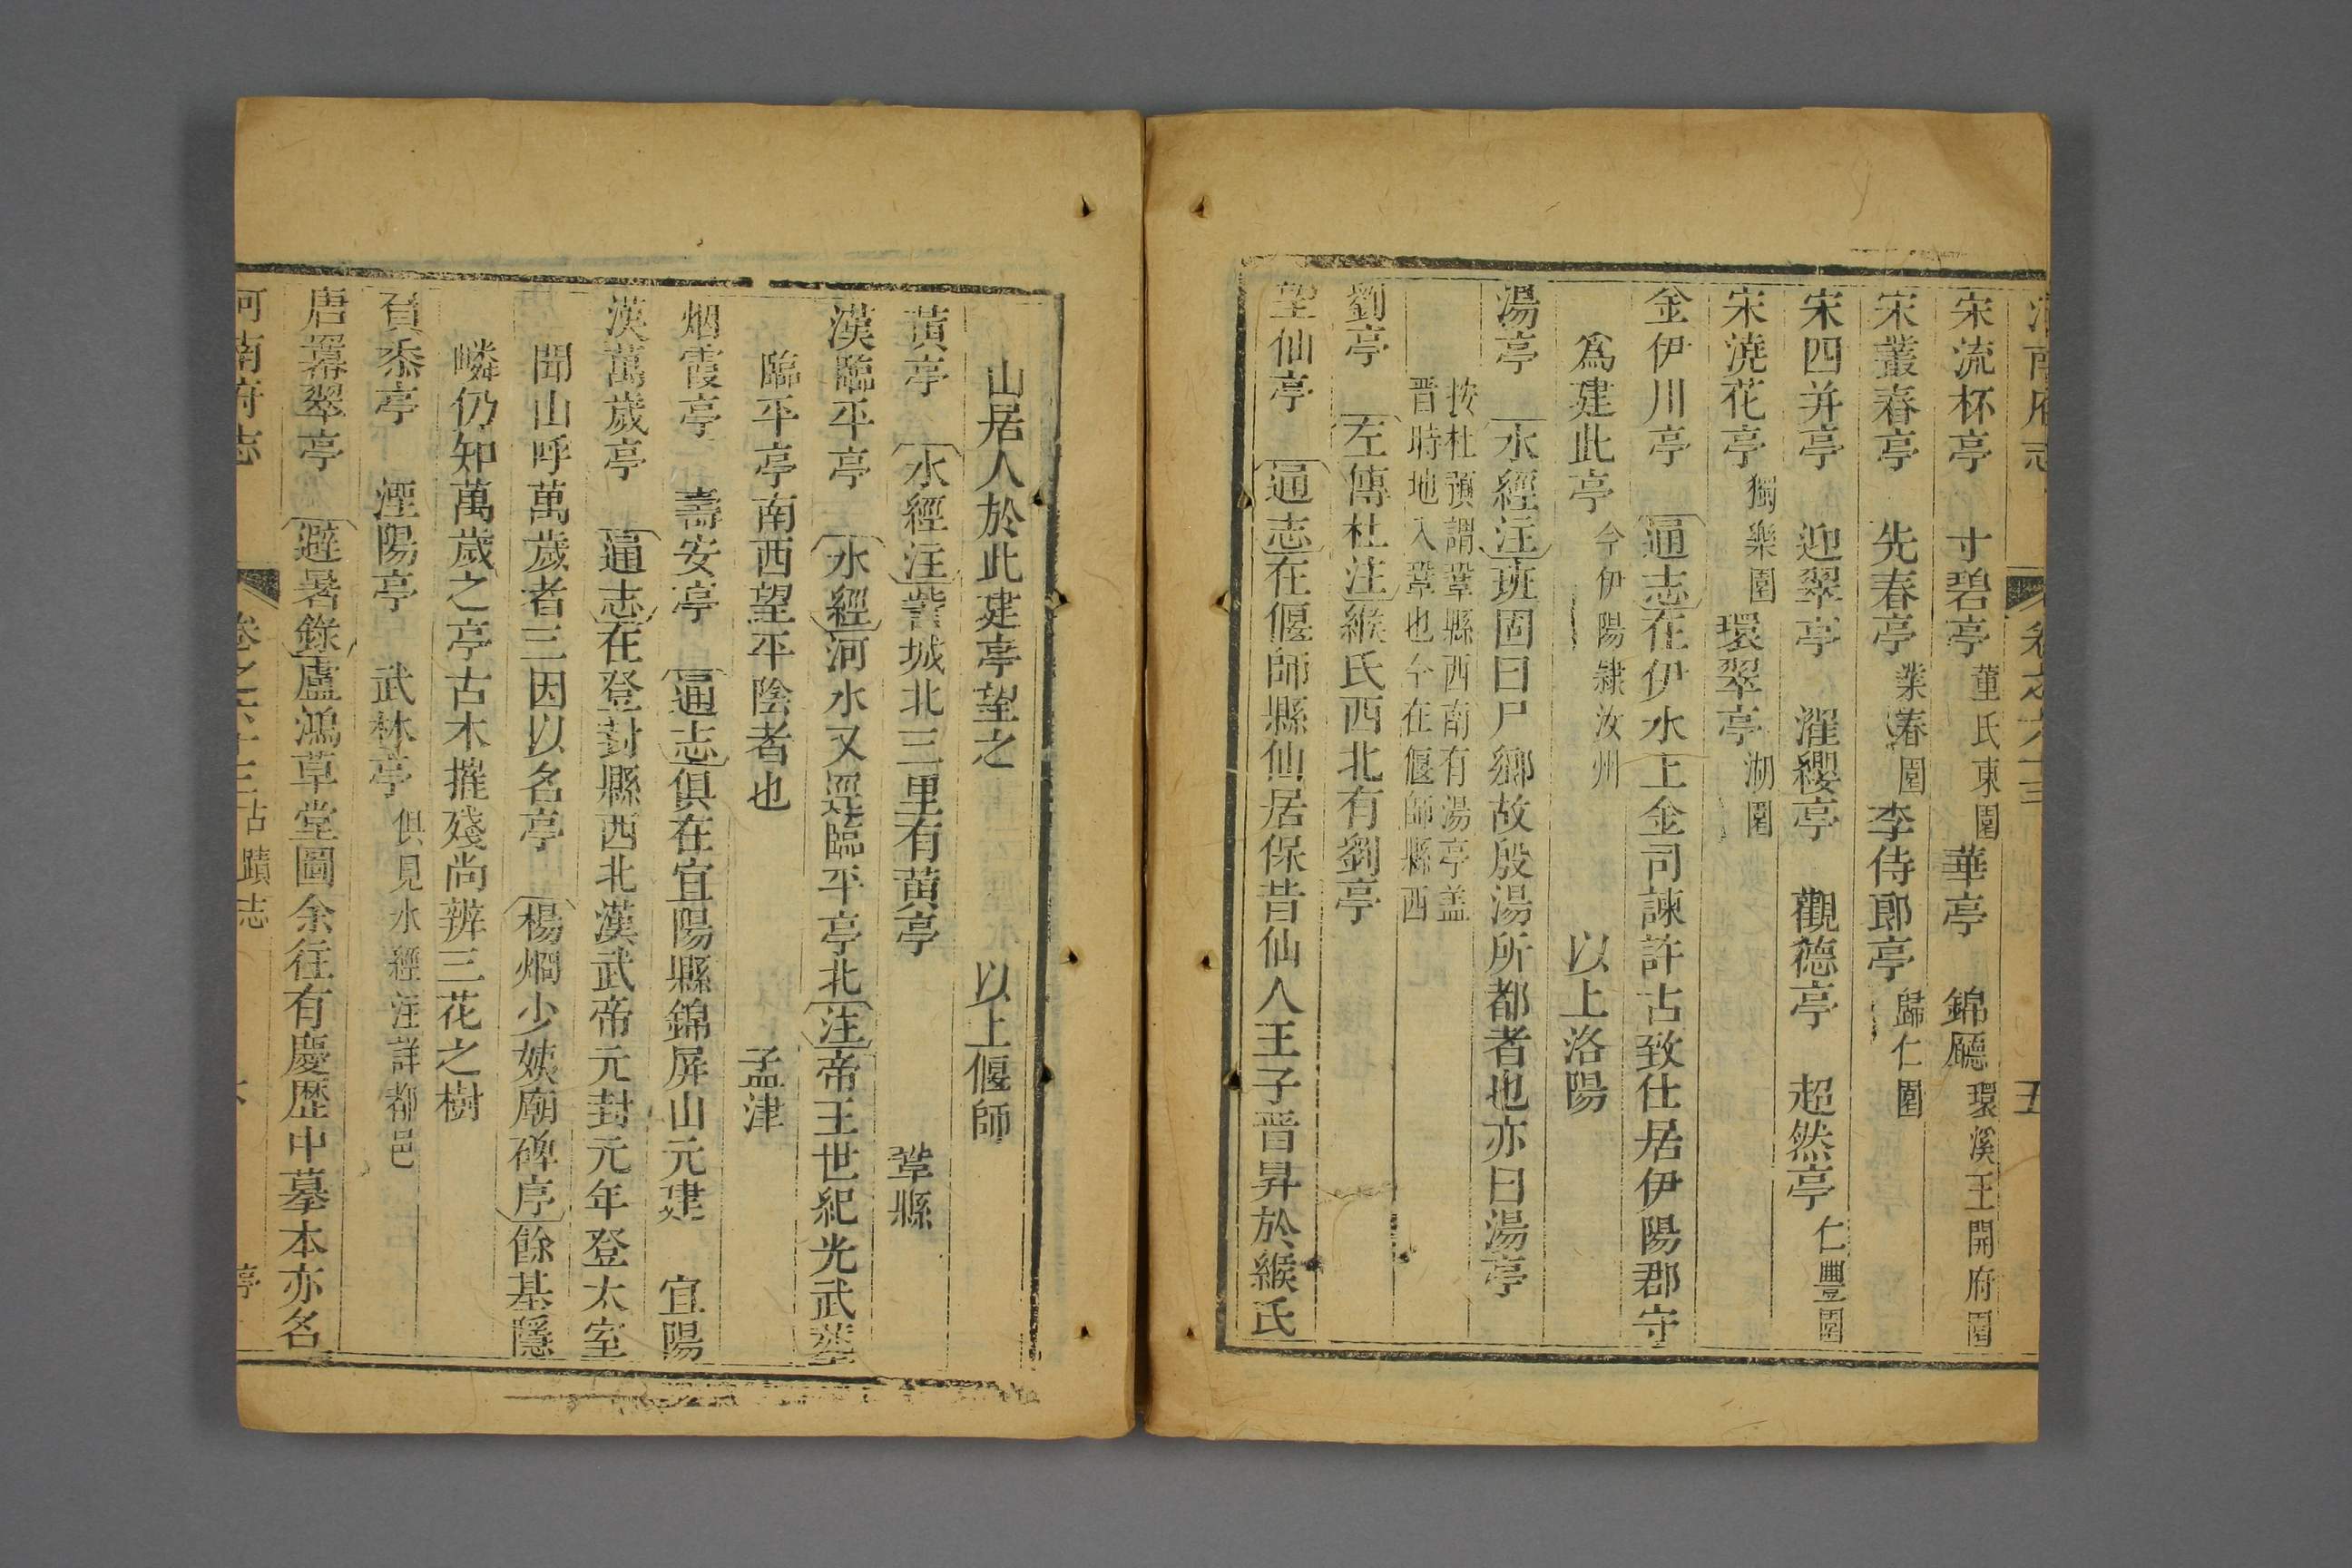 宋流杯亭　寸碧亭董氏東園華亭　錦廳環溪王開府園
宋叢春亭　先春亭叢春園李侍郎亭歸仁園
宋四并亭　迎翠亭　濯纓亭　觀德亭　超然亭仁豐園
宋澆花亭獨樂園環翠亭湖園
金伊川亭　通志在伊水上金司諫許古致仕居伊陽郡守
爲建此亭今伊陽隸汝州　以上洛陽
湯亭　水經注班固曰尸鄉故殷湯所都者也亦曰湯亭
按杜預謂鞏縣西南有湯亭盖
晋時地入鞏也今在偃師縣西
劉亭　左傳杜注緱氏西北有劉亭
望仙亭　通志在偃師縣仙居保昔仙人王子晋昇於緱氏
山居人於此建亭望之　以上偃師
黃亭　水經注訾城北三里有黃亭　鞏縣
漢臨平亭　水經河水又逕臨平亭北注帝王世紀光武葬
臨平亭南西望平陰者也　孟津
烟霞亭　壽安亭　通志俱在宜陽縣錦屏山元建　宜陽
漢萬歲亭　通志在登封縣西北漢武帝元封元年登太室
聞山呼萬歲者三因以名亭　楊烱少姨廟碑序餘基隱
嶙仍知萬歲之亭古木摧殘尚辨三花之樹
負黍亭　湮陽亭　武林亭俱見水經注詳都邑
唐羃翠亭　避暑錄盧鴻草堂圖余往有慶歷中摹本亦名
河南府志　卷之六十三古蹟志　亭